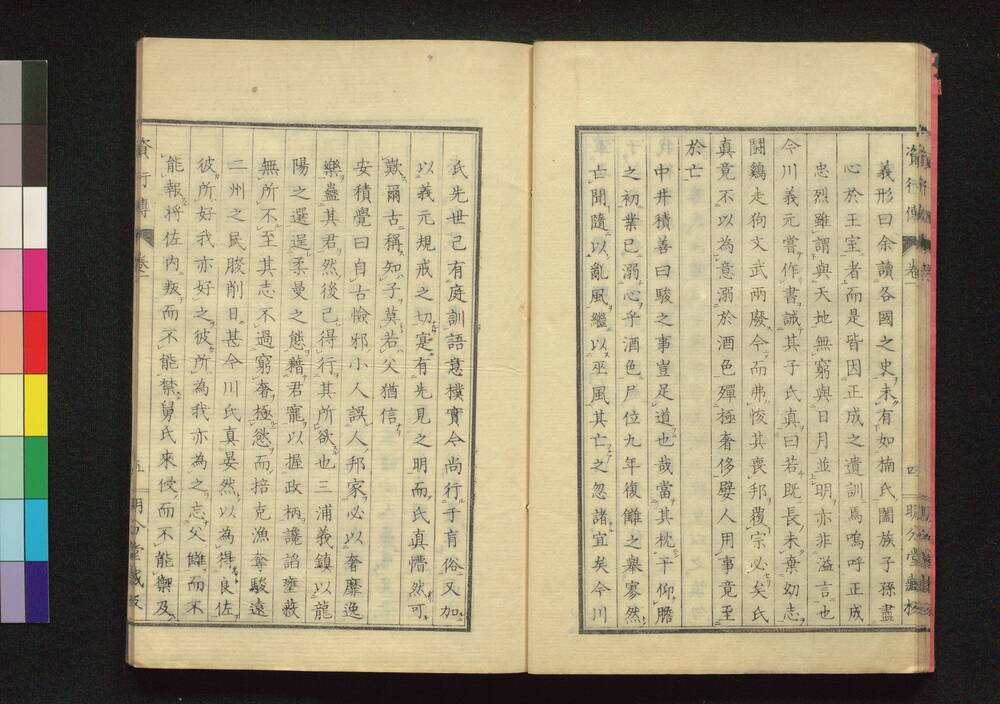 義形曰余讀各國之史未有如楠氏闔族子孫盡
心於王室者而是皆因正成之遺訓焉嗚呼正成
忠烈雖謂與天地無窮與日月並明亦非溢言也
今川義元嘗作書誡其子氏真曰若既長未棄幼志
鬪鷄走狗文武兩廢今而弗悛其喪邦覆宗必矣氏
真竟不以為意溺於酒色殫極奢侈嬖人用事竟至
於亡
中井積善曰駿之事豈足道也哉當其枕干仰膽
之初業已溺心乎酒色尸位九年復讎之舉寥然
亡聞隨以亂風繼以巫風其亡之忽諸宜矣今川
氏先世已有庭訓語意樸實今尚行于育俗又加
以義元規戒之切寔有先見之明而氏真懵然可
歎爾古稱知子莫若父猶信
安積覺曰自古憸邪小人誤人邦家必以奢靡逸
樂蠱其君然後己得行其所欲也三浦義鎮以龍
陽之選逞柔曼之態藉君寵以握政柄讒諂壅蔽
無所不至其志不過窮奢極慾而掊克漁奪駿遠
二州之民朘削日甚今川氏真晏然以為得良佐
彼所好我亦好之彼所為我亦為之忘父讎而不
能報將佐內叛而不能禁舅氏來侵而不能禦及
資行傳
卷一
五
明分堂藏板